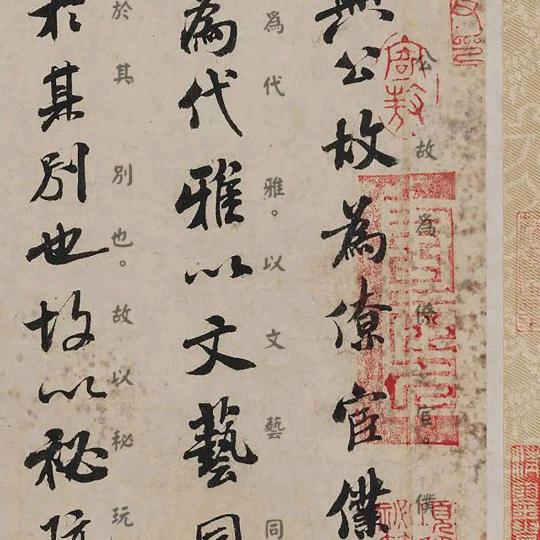 公故為僚官。僕
無公故為僚官僕
為代雅。以文藝同
為代雅以文藝同
於其別也。故以秘玩
於其別也故以秘玩